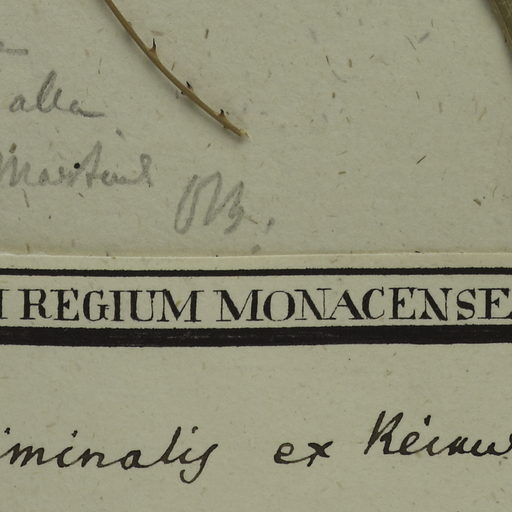 alba
Martius
REGIUM MONACENSE
iminalis ex